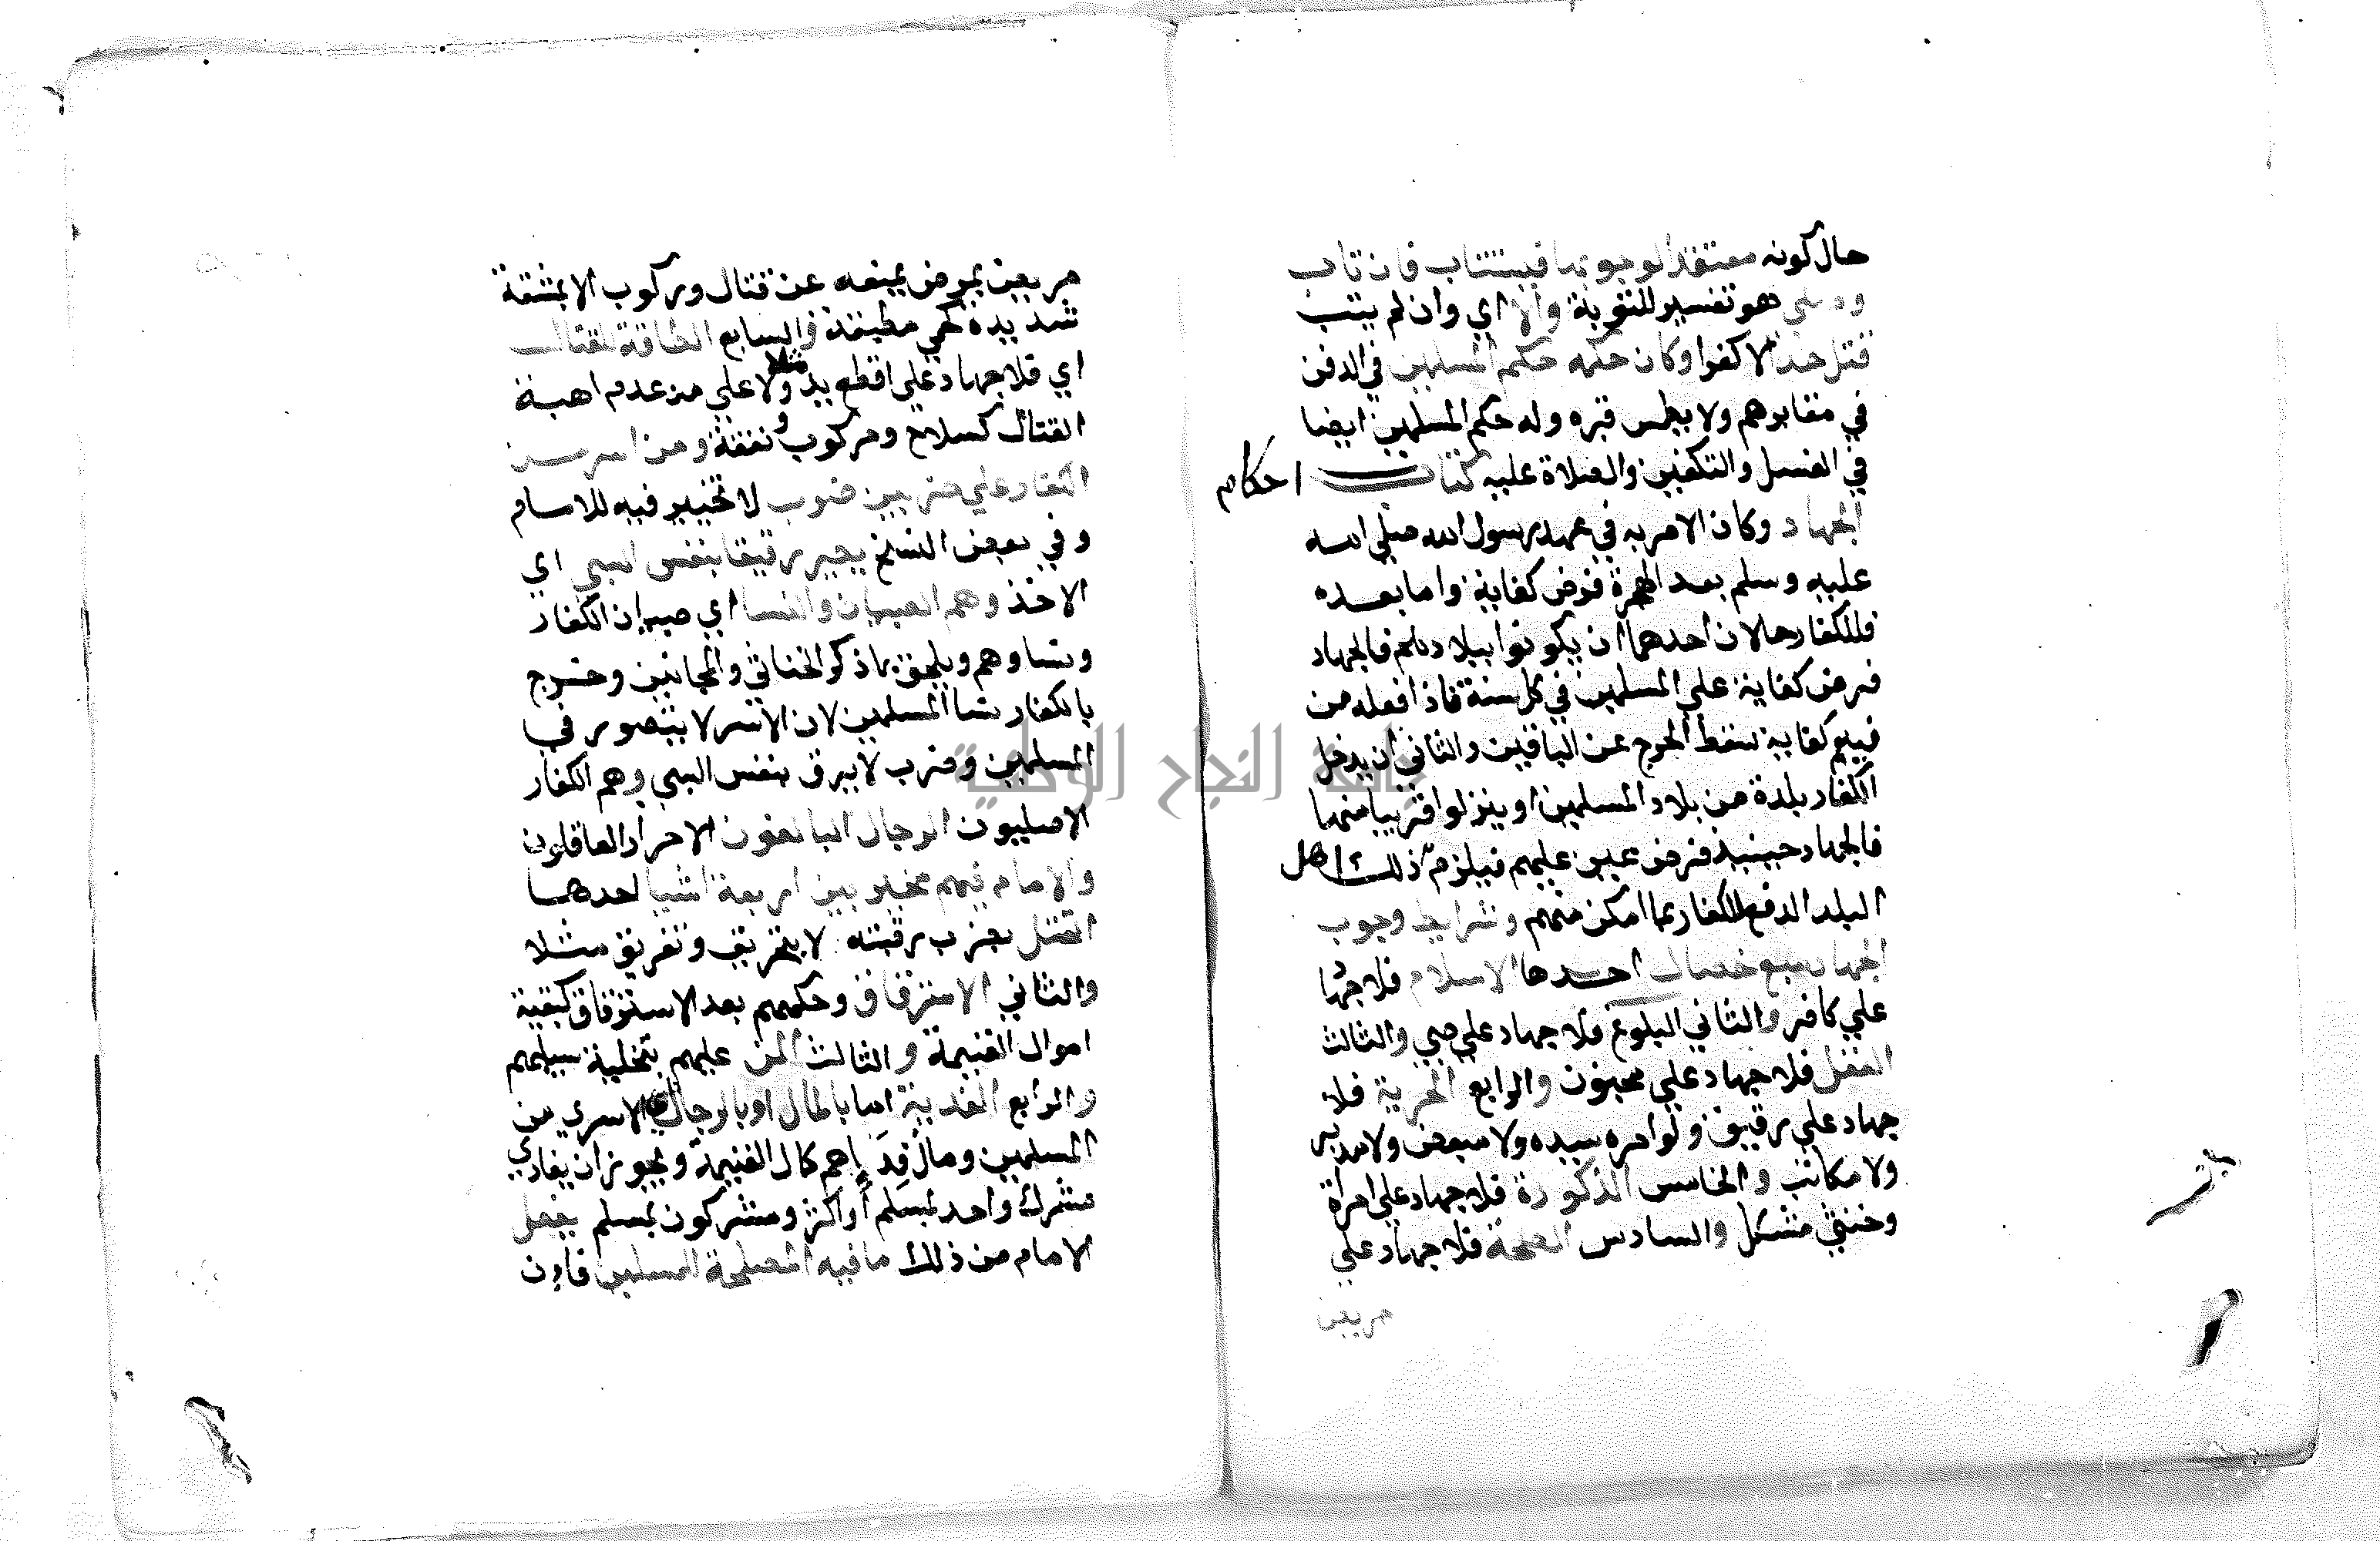 حال كونه معتقدا لوجوبها فيستتاب فان تاب
وصلى هو تفسير للتوبة والا اي وان لم يتب
قتل حدا لا كفرا وكان حكمه حكم المسلمين في الدفن
في مقابرهم ولا يطمس قبره وله حكم المسلمين ايضا
في الغسل والتكفين والصلاة عليه كتاب احكام
الجهاد وكان الامر به في عهد رسول الله صلي الله
عليه وسلم بعد الهجرة فرض كفاية واما بعده
فللكفار حالان احدهما ان يكونوا ببلادهم فالجهاد
فرض كفاية علي المسلمين في كل سنة فاذا فعله من
فيهم كفاية سقط الحرج عن الباقين والثاني ان يدخل
الكفار بلدة من بلاد المسلمين او ينزلوا قريبا منها
فالجهاد حينيذ فرض عين عليهم فيلزم ذلك اهل
البلد الدفع للكفار بما امكن منهم وشرايط وجوب
الجهاد سبع خصال احدها الاسلام فلا جهاد
علي كافر والثاني البلوغ فلا جهاد علي صبي والثالث
العقل فلا جهاد علي مجنون والرابع الحرية فلا
جهاد علي رقيق ولو امره سيده ولا مبعض ولا مدبر
ولا مكاتب والخامس الذكورة فلا جهاد علي امراة
وخنثي مشكل والسادس الصحة فلا جهاد علي
مريض
مريض بمرض يمنعه عن قتال وركوب الا بمشقة
شديدة كحمي مطبقة والسابع الطاقة للقتال
اي فلا جهاد علي اقطع يد مثلا ولا علي من عدم اهبة
القتال كسلاح ومركوب ونفقة ومن اسر من
الكفار علي ضربين ضرب لا تخيير فيه للامام
وفي بعض النسخ يصير رقيقا بنفس السبي اي
الاخذ وهم الصبيان والنسا اي صبيان الكفار
ونساوهم ويلحق بما ذكر الخناثي والمجانين وخرج
بالكفار نسا المسلمين لان الاسر لا يتصور في
المسلمين وضرب لا يرق بنفس السبي وهم الكفار
الاصليون الرجال البالغون الاحرار العاقلون
والامام فيهم مخير بين اربعة اشيا احدها
القتل بضرب رقبته لا بتحريق وتغريق مثلا
والثاني الاسترقاق وحكمهم بعد الاسترقاق كبقية
اموال الغنيمة والثالث المن عليهم بتخلية سبيلهم
والرابع الفدية اما بالمال او بالرجال الاسري من
المسلمين ومال فداهم كمال الغنيمة ويجوز ان يفادي
مشرك واحد بمسلم او اكثر ومشركون بمسلم يفعل
الامام من ذلك ما فيه المصلحة للمسلمين فان
جامعة النجاح الوطنية